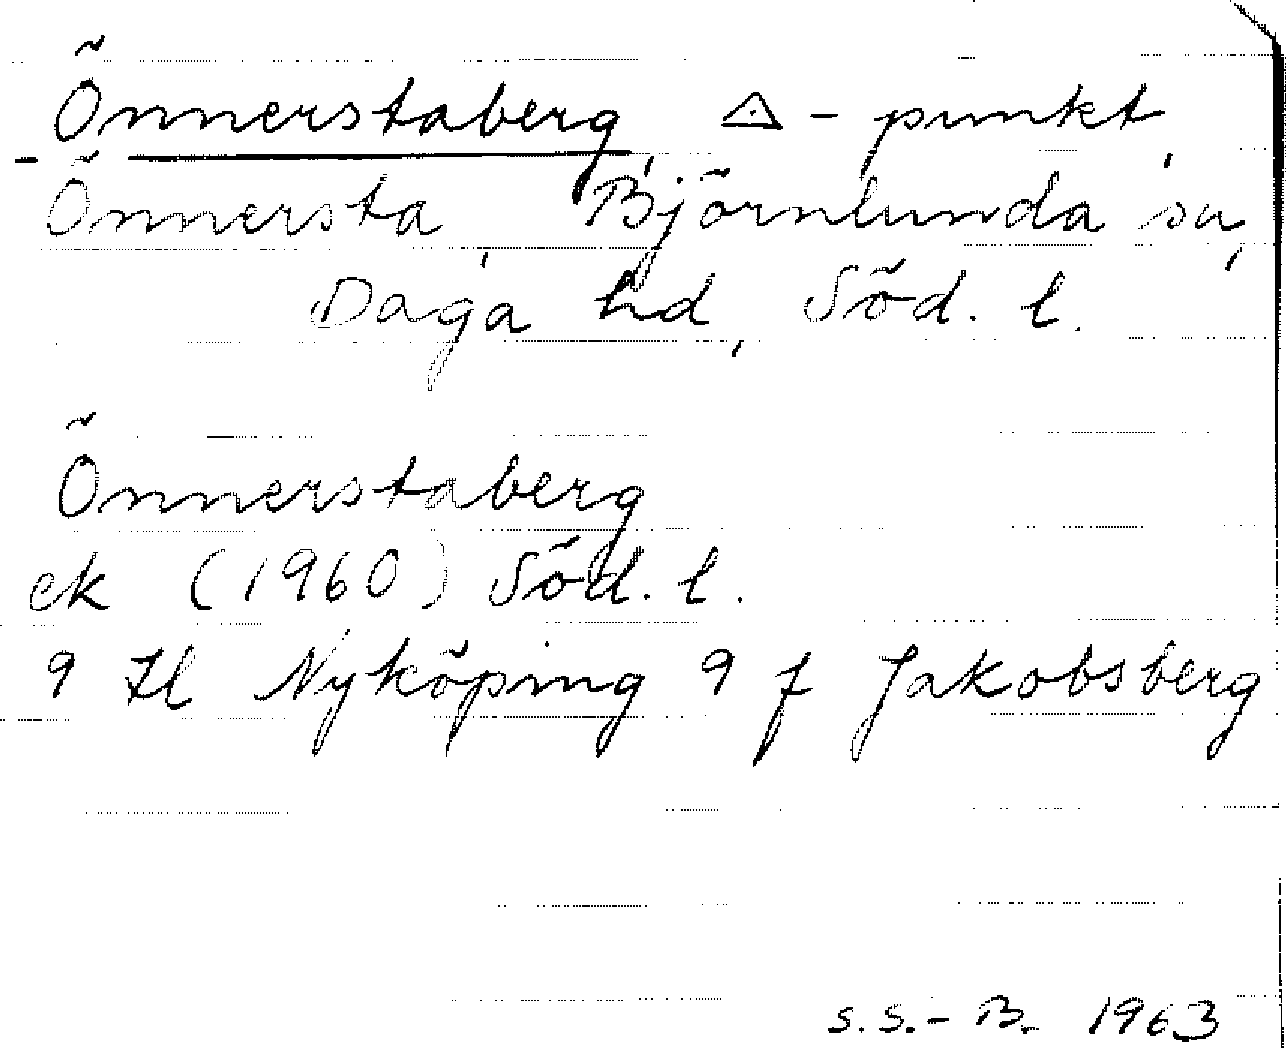 Önnerstaberg, △ - punkt,
Önnersta, Björnlunda sn,
Daga hd, Söd. l.
Önnerstaberg
ek (1960) Söd. l.
9 H Nyköping 9 f Jakobsberg
S.S.-B. 1963